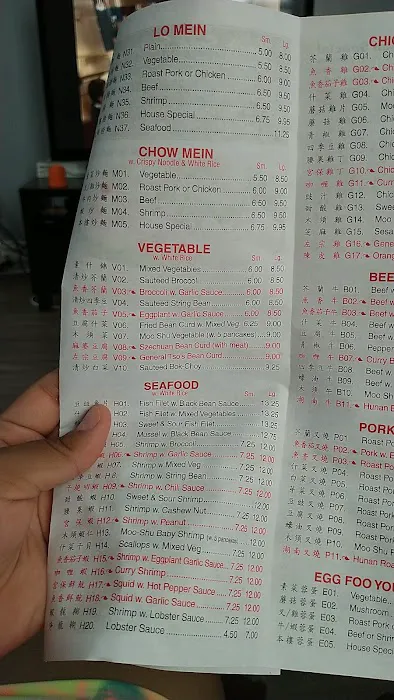 LO MEIN
Sm. Lg.
N31. Plain 5.00 8.00
N32. Vegetable 5.50 8.50
N33. Roast Pork or Chicken 6.00 9.00
N34. Beef 6.50 9.50
N35. Shrimp 6.50 9.50
N36. House Special 6.75 9.95
N37. Seafood 11.25
CHOW MEIN
w. Crispy Noodle & White Rice
Sm. Lg.
M01. Vegetable 5.50 8.50
M02. Roast Pork or Chicken 6.00 9.00
M03. Beef 6.50 9.50
M04. Shrimp 6.50 9.50
M05. House Special 6.75 9.95
VEGETABLE
w. White Rice
Sm. Lg.
V01. Mixed Vegetables 6.00 8.50
V02. Sauteed Broccoli 6.00 8.50
魚香芥蘭 V03. Broccoli w. Garlic Sauce 6.00 8.50
清炒四季豆 V04. Sauteed String Bean 6.00 8.50
魚香茄子 V05. Eggplant w. Garlic Sauce 6.00 8.50
豆腐什菜 V06. Fried Bean Curd w. Mixed Veg 6.25 9.00
木須菜 V07. Moo Shu Vegetable (w. 5 pancakes) 9.00
麻婆豆腐 V08. Szechuan Bean Curd (with meat) 9.00
左宗豆腐 V09. General Tso's Bean Curd 9.00
清炒白菜 V10. Sauteed Bok Choy 9.25
SEAFOOD
w. White Rice
Sm. Lg.
H01. Fish Filet w. Black Bean Sauce 13.25
H02. Fish Filet w. Mixed Vegetables 13.25
H03. Sweet & Sour Fish Filet 13.25
H04. Mussel w. Black Bean Sauce 12.75
H05. Shrimp w. Broccoli 7.25 12.00
H06. Shrimp w. Garlic Sauce 7.25 12.00
H07. Shrimp w. Mixed Veg 7.25 12.00
H08. Shrimp w. String Bean 7.25 12.00
H09. Shrimp w. Chili Sauce 7.25 12.00
甜酸蝦 H10. Sweet & Sour Shrimp 7.25 12.00
腰果蝦 H11. Shrimp w. Cashew Nut 7.25 12.00
宮保蝦 H12. Shrimp w. Peanut 7.25 12.00
木須蝦仁 H13. Moo-Shu Baby Shrimp (w. 5 pancakes) 12.00
什菜干貝 H14. Scallops w. Mixed Veg 7.25 12.00
魚香茄子蝦 H15. Shrimp w. Eggplant Garlic Sauce 7.25 12.00
咖喱蝦 H16. Curry Shrimp 7.25 12.00
宮保鮮魷 H17. Squid w. Hot Pepper Sauce 7.25 12.00
魚香鮮魷 H18. Squid w. Garlic Sauce 7.25 12.00
H19. Shrimp w. Lobster Sauce 7.25 12.00
H20. Lobster Sauce 4.50 7.00
芥蘭雞 G01.
魚香雞 G02.
魚香茄子雞 G03.
什菜雞 G04.
蘑菇雞片 G05. Moo
蘑菇雞 G06.
青椒雞 G07.
四季豆雞 G08.
腰果雞丁 G09.
宮保雞丁 G10.
咖喱雞 G11. Curry
豉汁雞 G12.
甜酸雞 G13. Sweet
木須雞 G14. Moo
芝麻雞 G15. Sesame
左宗雞 G16. General
陳皮雞 G17. Orange
BEE
芥蘭牛 B01. Beef w
魚香牛 B02. Beef w
魚香茄子牛 B03. Beef w
什菜牛 B04. Beef w
豆腐牛 B05. Beef w
青椒牛 B06. Pepper
咖喱牛 B07. Curry B
四季豆牛 B08. Beef w
蠔油牛 B09. Beef w
木須牛 B10. Moo Shu
湖南牛 B11. Hunan B
PORK
芥蘭叉燒 P01. Roast P
魚香叉燒 P02. Pork w. B
P03. Roast Po
什菜叉燒 P04. Roast P
白菜叉燒 P05. Roast P
芽菜叉燒 P06. Roast P
豆豉叉燒 P07. Roast P
豆腐叉燒 P08. Roast P
蠔油叉燒 P09. Roast P
木須叉燒 P10. Moo Shu P
湖南叉燒 P11. Hunan Roast
EGG FOO YOU
素菜蓉蛋 E01. Vegetable
蘑菇蓉蛋 E02. Mushroom
叉/雞蓉蛋 E03. Roast Pork
牛/蝦蓉蛋 E04. Beef or Shrimp
本樓蓉蛋 E05. House Special